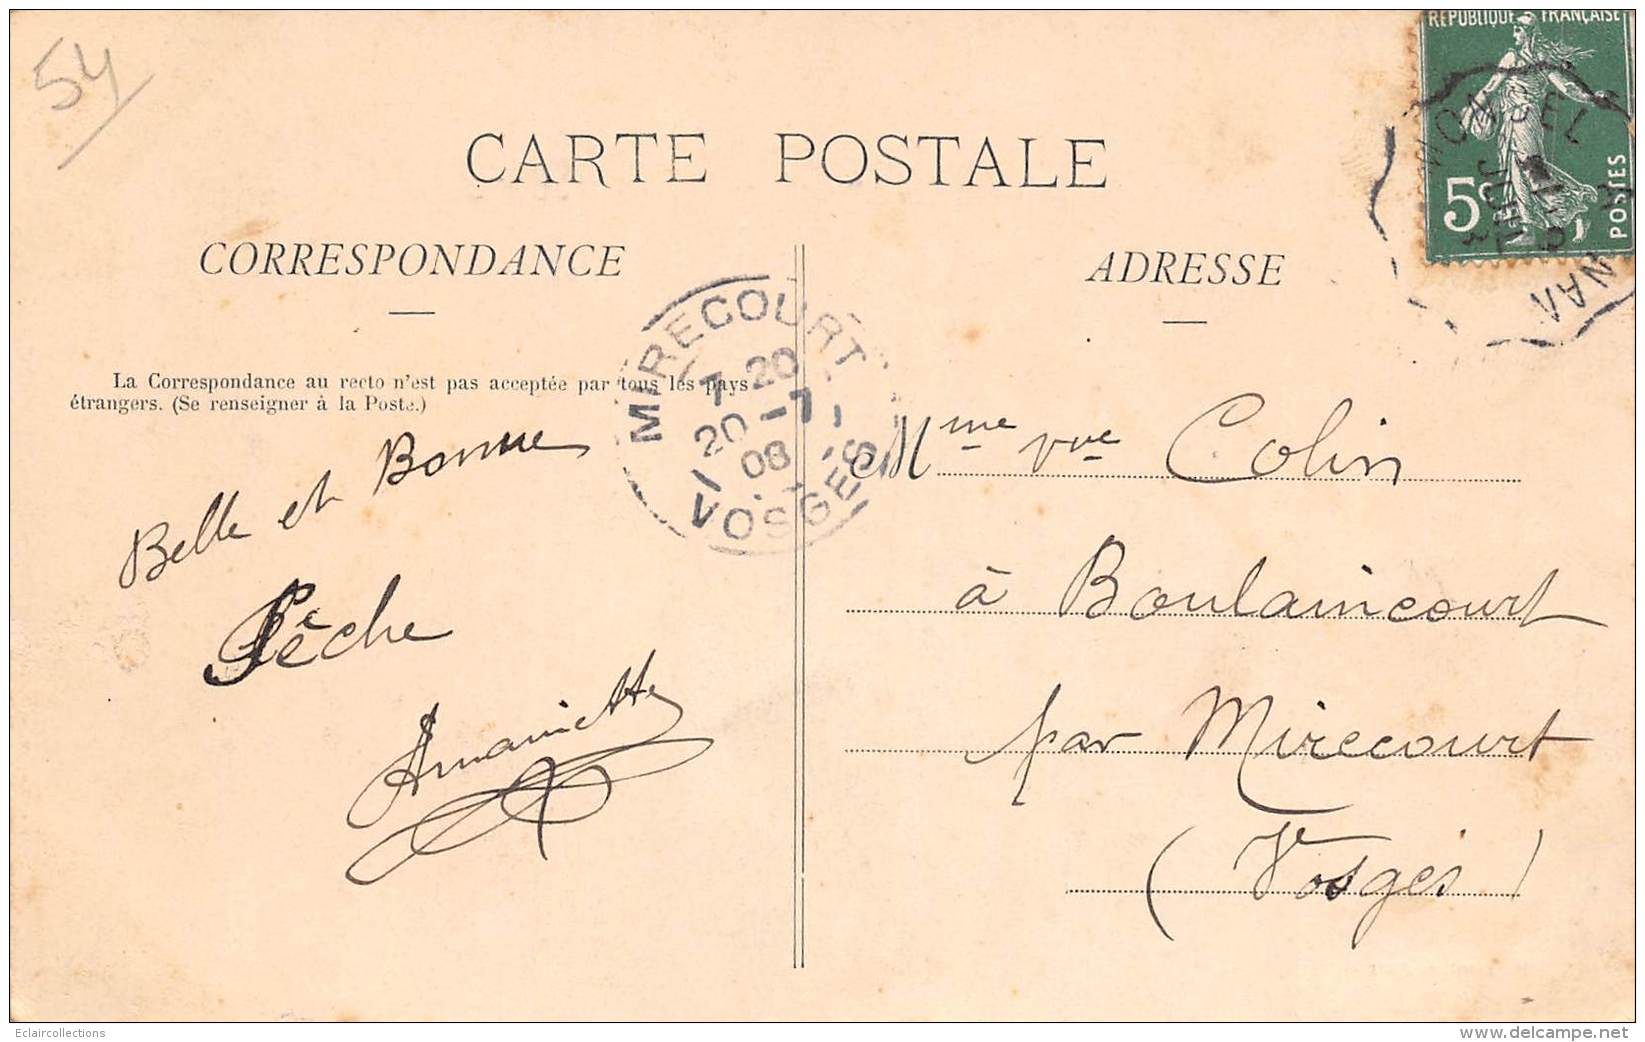 54
CARTE POSTALE
CORRESPONDANCE
La Correspondance au recto n'est pas acceptée par tous les pays
étrangers. (Se renseigner à la Poste.)
Belle et Bonne
Pêche
MIRECOURT
7 20
20 - 7
08
VOSGES
REPUBLIQUE FRANÇAISE
5c
POSTES
ADRESSE
Mme vve Colin
à Boulaincourt
par Mirecourt
(Vosges)
Eclaircollections
www.delcampe.net